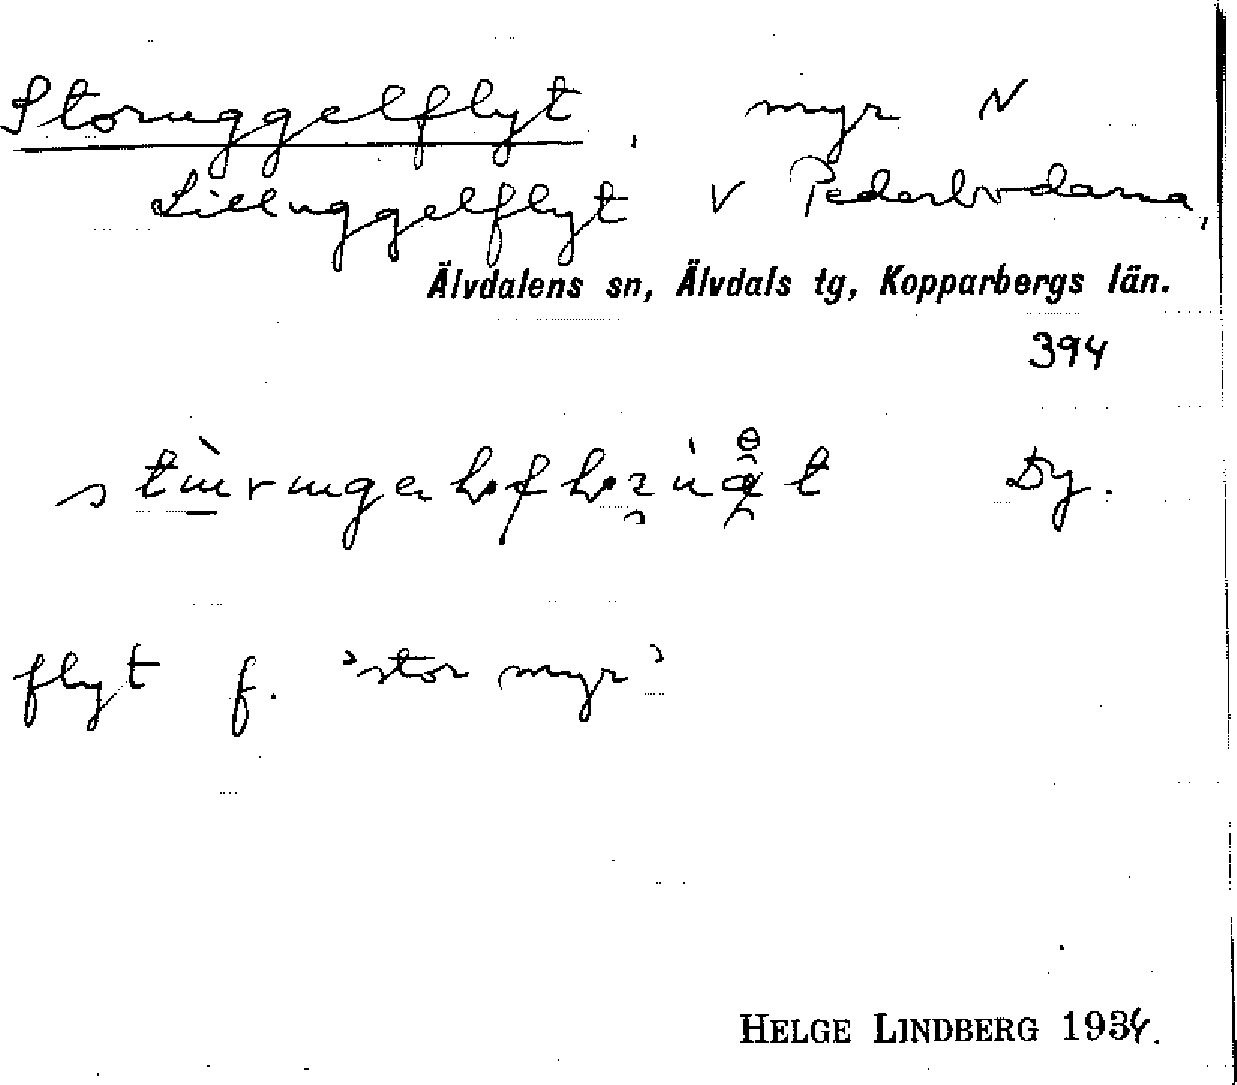 Storuggelflyt, myr N
Lilluggelflyt V Pederbodarna,
Älvdalens sn, Älvdals tg, Kopparbergs län.
394
Dy.
flyt f. ’stor myr’
HELGE LINDBERG 1934.